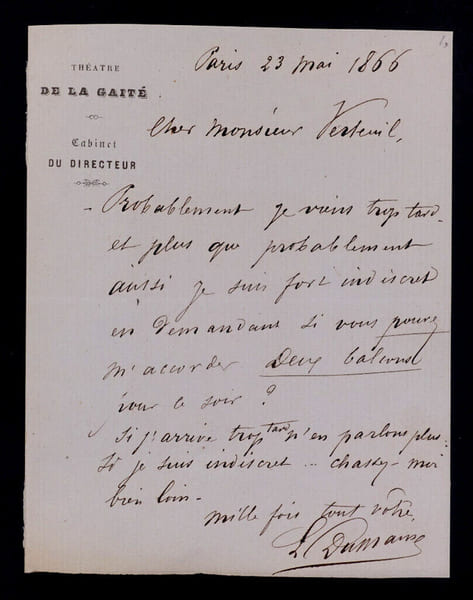 THÉATRE
DE LA GAITÉ
Cabinet
DU DIRECTEUR
Paris 23 mai 1866
Cher Monsieur Verteuil,
Probablement je viens trop tard
et plus que probablement
aussi je suis fort indiscret
en demandant si vous pouvez
m'accorder Deux balcons
pour ce soir ?
Si j'arrive trop tard n'en parlons plus.
Si je suis indiscret ... chassez-moi
bien loin -
mille fois tout vôtre,
L Dumaine